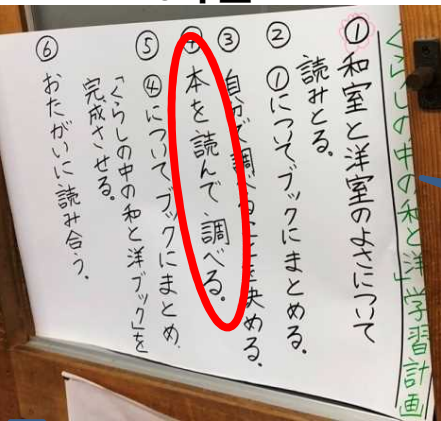 くらしの中の和と洋」学習計画
①和室と洋室のよさについて
読みとる。
②①について、ブックにまとめる。
③自分で調べることを決める。
④本を読んで、調べる。
⑤④について、ブックにまとめ、
「くらしの中の和と洋ブック」を
完成させる。
⑥おたがいに読み合う。